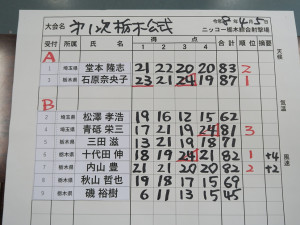 大会名 第1次栃木公式 令和8年4月5日
ニッコー栃木綜合射撃場
受付 所属 氏名 得点 合計 順位 摘要 天候
1 2 3 4
A
1 埼玉県 堂本 隆志 21 22 20 20 83 2
栃木県 石原奈央子 23 21 24 19 87 1
B
2 埼玉県 松澤 孝浩 19 16 12 15 62
4 埼玉県 青砥 栄三 17 21 19 24 81 3
5 栃木県 三田 滋 13 21 19 18 71
6 栃木県 十代田 伸 18 19 24 21 82 1 +4 風速
7 栃木県 内山 豊 21 21 20 20 82 2 +2
8 栃木県 秋山 哲也 19 18 17 15 69
9 栃木県 磯 裕樹 6 11 13 15 45